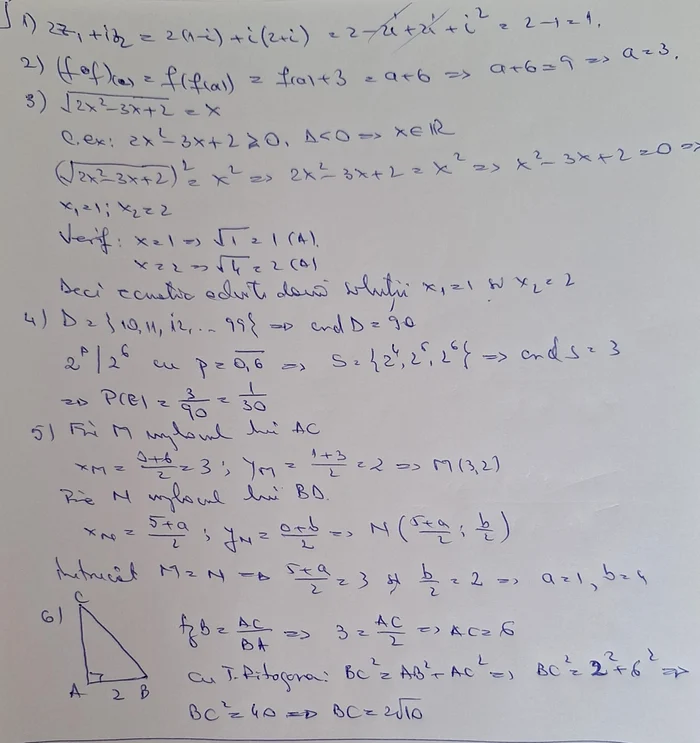 1) 2z₁ + iz₂ = 2(1-i) + i(2+i) = 2 - 2i + 2i + i² = 2 - 1 = 1.
2) (f∘f)(a) = f(f(a)) = f(a) + 3 = a + 6 => a + 6 = 9 => a = 3.
3) √(2x² - 3x + 2) = x
C.ex: 2x² - 3x + 2 ⩾ 0, Δ < 0 => x ∈ ℝ
(√(2x² - 3x + 2))² = x² => 2x² - 3x + 2 = x² => x² - 3x + 2 = 0 =>
x₁ = 1; x₂ = 2
Verif: x = 1 => √1 = 1 (A).
x = 2 => √4 = 2 (A)
Deci ecuația admite două soluții x₁ = 1 și x₂ = 2
4) D = {10, 11, 12, ... 99} => card D = 90
2^p | 2⁶ cu p = 0,6 => S = {2⁴, 2⁵, 2⁶} => card S = 3
=> P(E) = 3/90 = 1/30
5) Fie M mijlocul lui AC
x_M = (0+6)/2 = 3; y_M = (1+3)/2 = 2 => M(3,2)
Fie N mijlocul lui BD.
x_N = (5+a)/2; y_N = (0+b)/2 => N((5+a)/2; b/2)
Întrucât M = N => (5+a)/2 = 3 și b/2 = 2 => a = 1, b = 4
6) C A 2 B tg B = AC/BA => 3 = AC/2 => AC = 6
Cu T. Pitagora: BC² = AB² + AC² => BC² = 2² + 6² =>
BC² = 40 => BC = 2√10